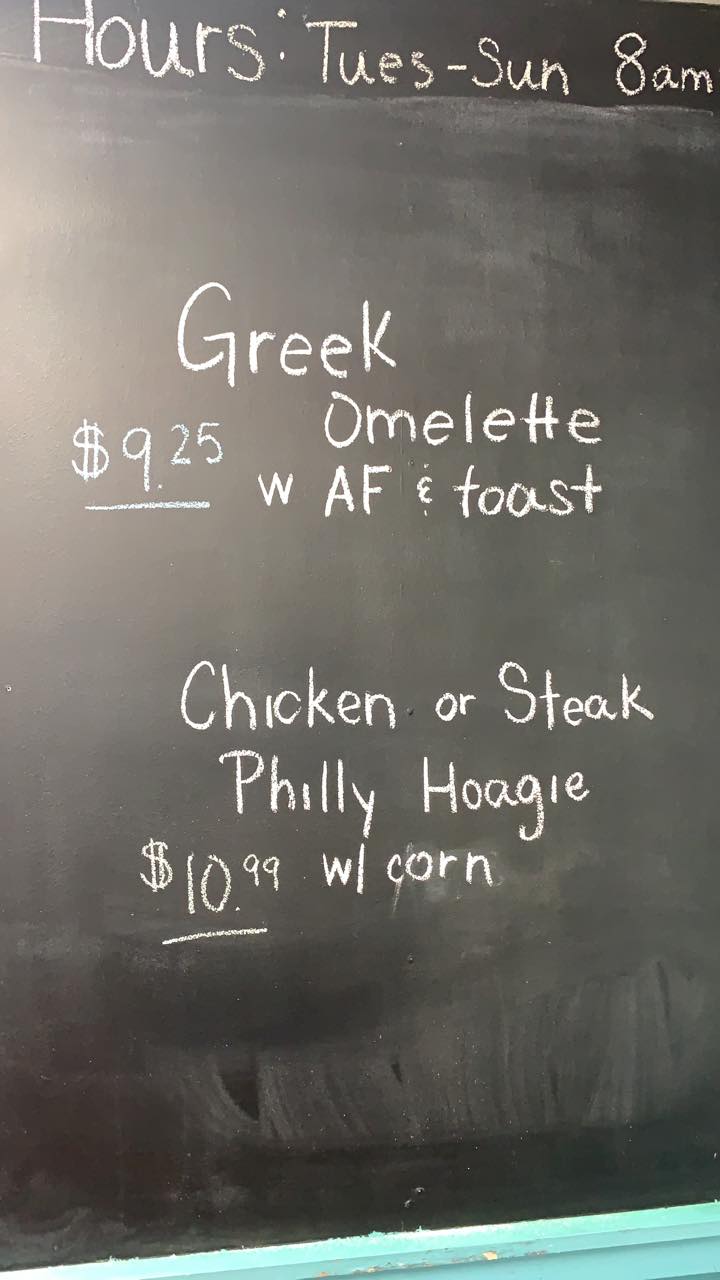 Hours: Tues-Sun 8am
Greek
Omelette
$9.25 w AF & toast
Chicken or Steak
Philly Hoagie
$10.99 w/ corn